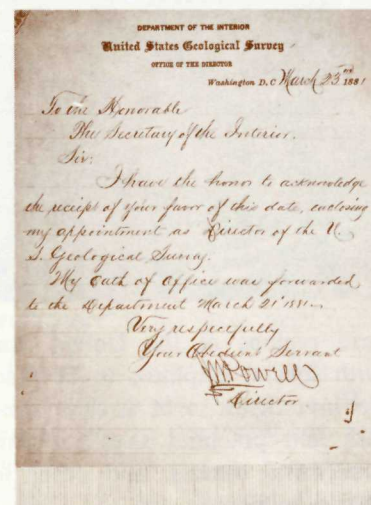 DEPARTMENT OF THE INTERIOR
United States Geological Survey
OFFICE OF THE DIRECTOR
Washington D. C. March 23rd 1881
To the Honorable
The Secretary of the Interior.
Sir:
I have the honor to acknowledge
the receipt of your favor of this date, enclosing
my appointment as Director of the U.
S. Geological Survey.
My Oath of Office was forwarded
to the Department March 21st 1881.
Very respectfully
Your Obedient Servant
JWPowell
Director